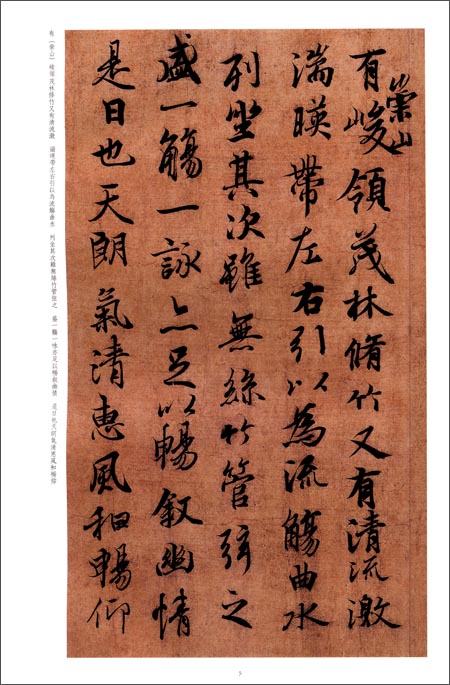 有崇山峻領茂林脩竹又有清流激
湍暎帶左右引以為流觴曲水
列坐其次雖無絲竹管弦之
盛一觴一詠亦足以暢叙幽情
是日也天朗氣清惠風和暢仰
有（崇山）峻領茂林脩竹又有清流激　湍暎帶左右引以為流觴曲水　列坐其次雖無絲竹管弦之　盛一觴一詠亦足以暢叙幽情　是日也天朗氣清惠風和暢仰
5